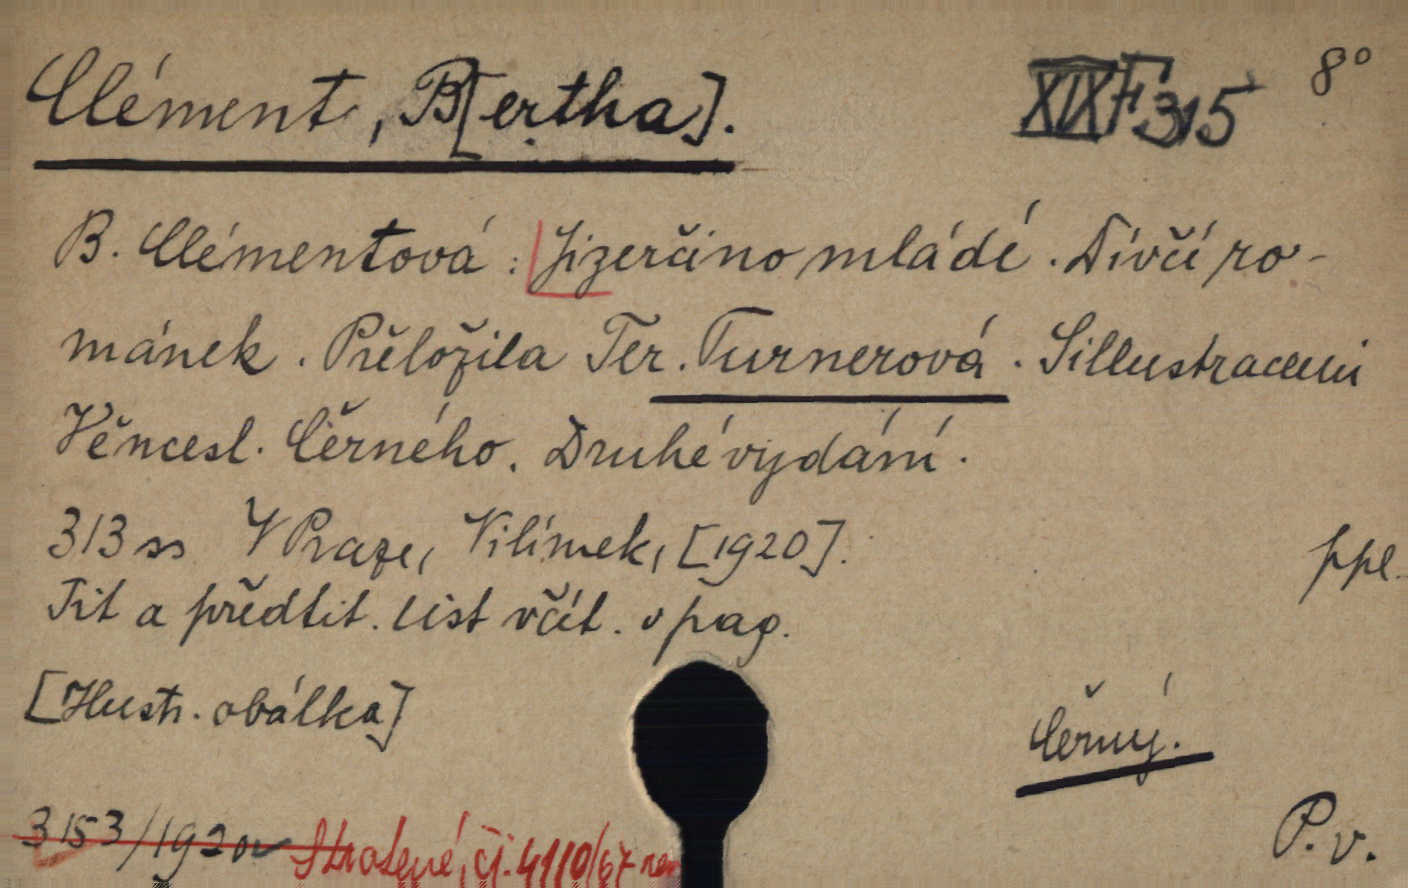 Clément, B[ertha]. XIX F 315 8°
B. Clémentová: Jizerčino mládí. Dívčí ro-
mánek. Přeložila Ter. Turnerová. S illustracemi
Věncesl. Černého. Druhé vydání.
313 ss V Praze, Vilímek, [1920]. ppl.
Tit a předtit. list včít. v pag.
[Ilustr. obálka]
Černý.
3153/1920 Ztracené, čj. 4110/67
P. v.